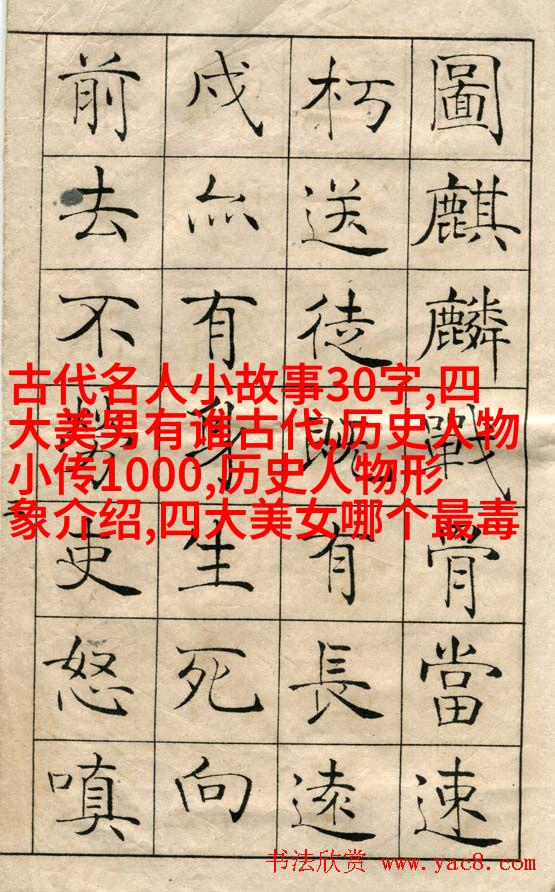 圖麒麟戰骨當速
朽送徒既有長遠
戍亦有身生死向
前去不勞吏怒嗔
古代名人小故事30字,四
大美男有谁古代,历史人物
小传1000,历史人物形
象介绍,四大美女哪个最毒
书法欣赏 www.yac8.com